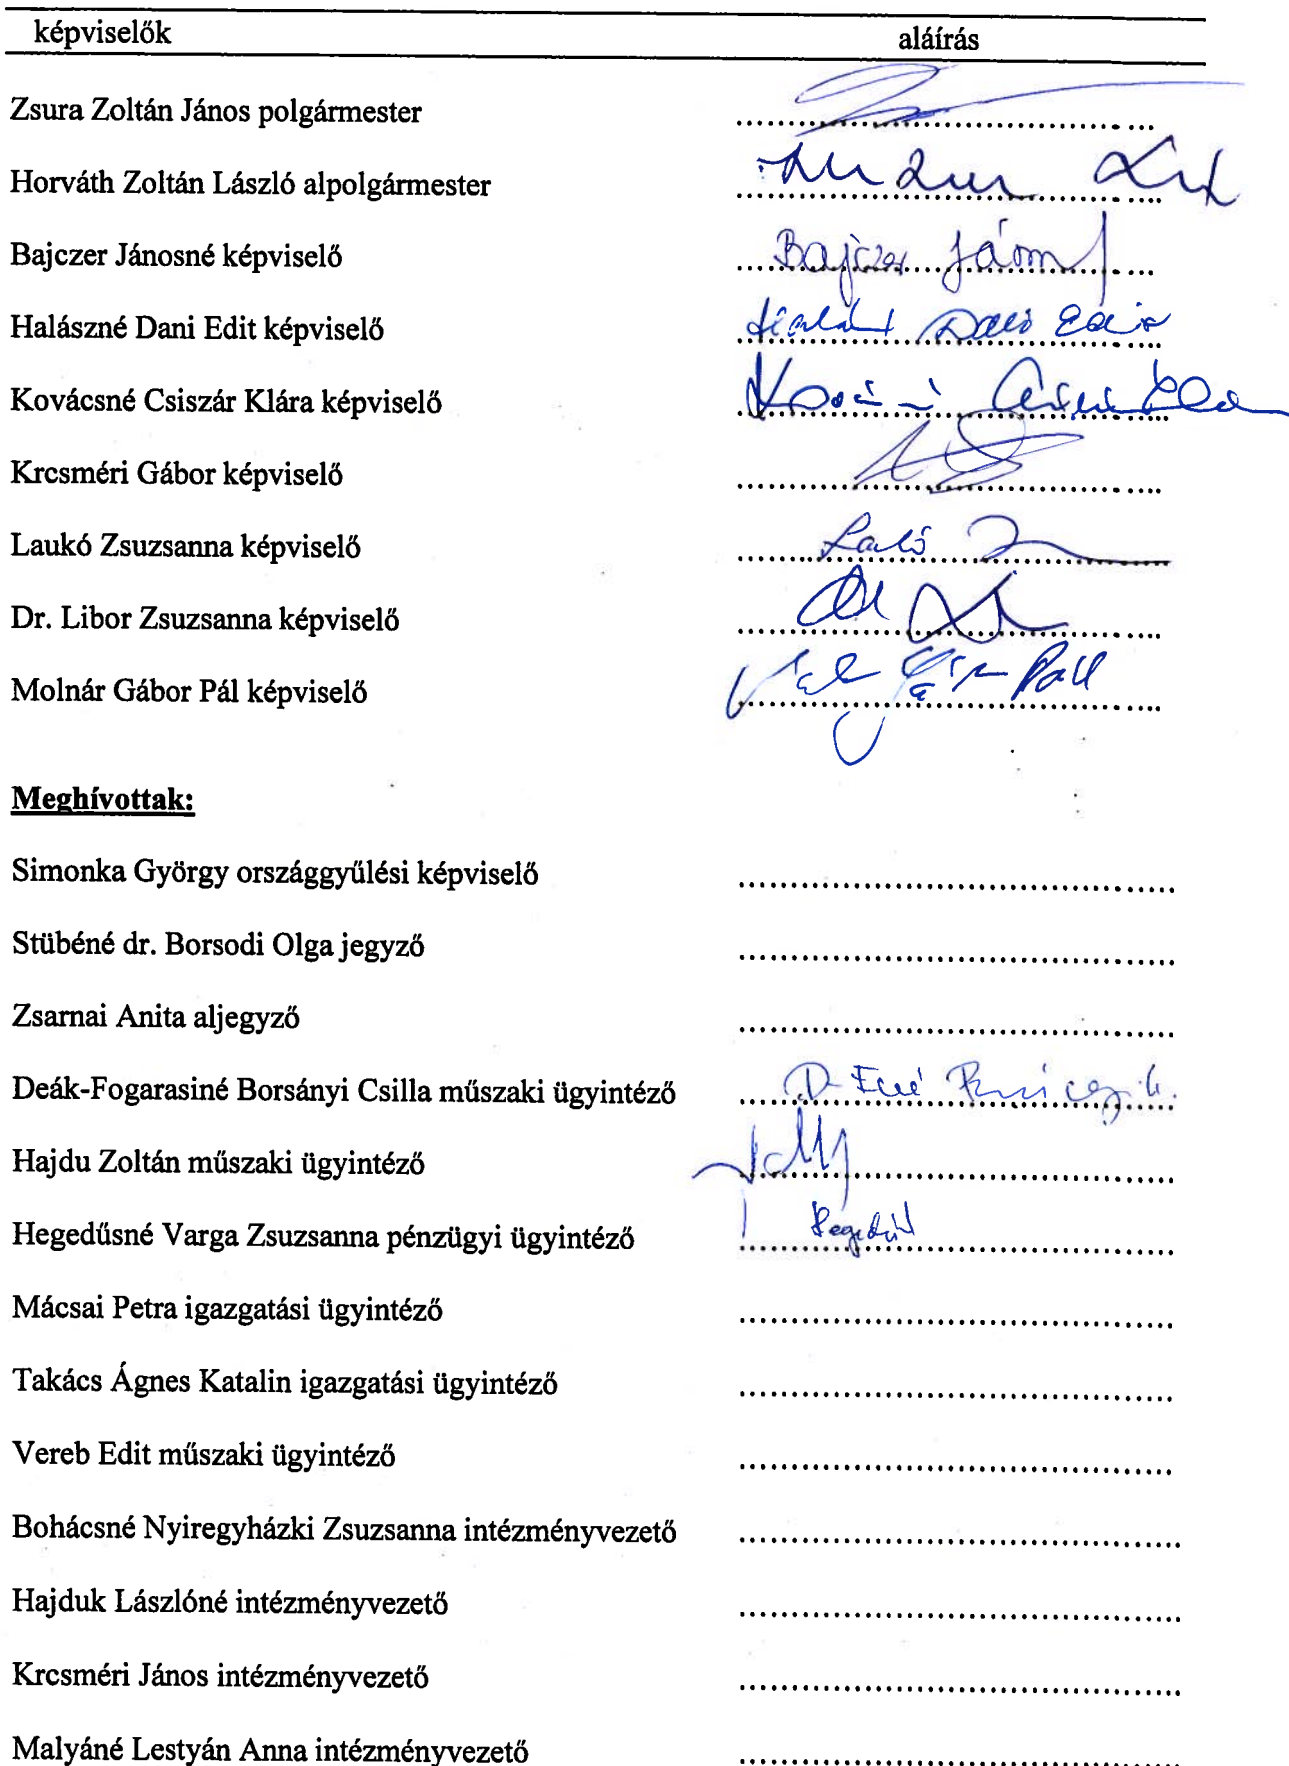 képviselők aláírás
Zsura Zoltán János polgármester
Horváth Zoltán László alpolgármester
Bajczer Jánosné képviselő Bajczer
Halászné Dani Edit képviselő
Kovácsné Csiszár Klára képviselő
Krcsméri Gábor képviselő
Laukó Zsuzsanna képviselő
Dr. Libor Zsuzsanna képviselő
Molnár Gábor Pál képviselő
Meghívottak:
Simonka György országgyűlési képviselő
Stübéné dr. Borsodi Olga jegyző
Zsarnai Anita aljegyző
Deák-Fogarasiné Borsányi Csilla műszaki ügyintéző
Hajdu Zoltán műszaki ügyintéző
Hegedűsné Varga Zsuzsanna pénzügyi ügyintéző
Mácsai Petra igazgatási ügyintéző
Takács Ágnes Katalin igazgatási ügyintéző
Vereb Edit műszaki ügyintéző
Bohácsné Nyiregyházki Zsuzsanna intézményvezető
Hajduk Lászlóné intézményvezető
Krcsméri János intézményvezető
Malyáné Lestyán Anna intézményvezető